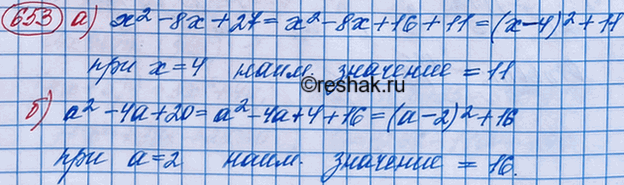 653 а) x² - 8x + 27 = x² - 8x + 16 + 11 = (x - 4)² + 11
при x = 4 наим. значение = 11
©reshak.ru
б) a² - 4a + 20 = a² - 4a + 4 + 16 = (a - 2)² + 16
при a = 2 наим. значение = 16.